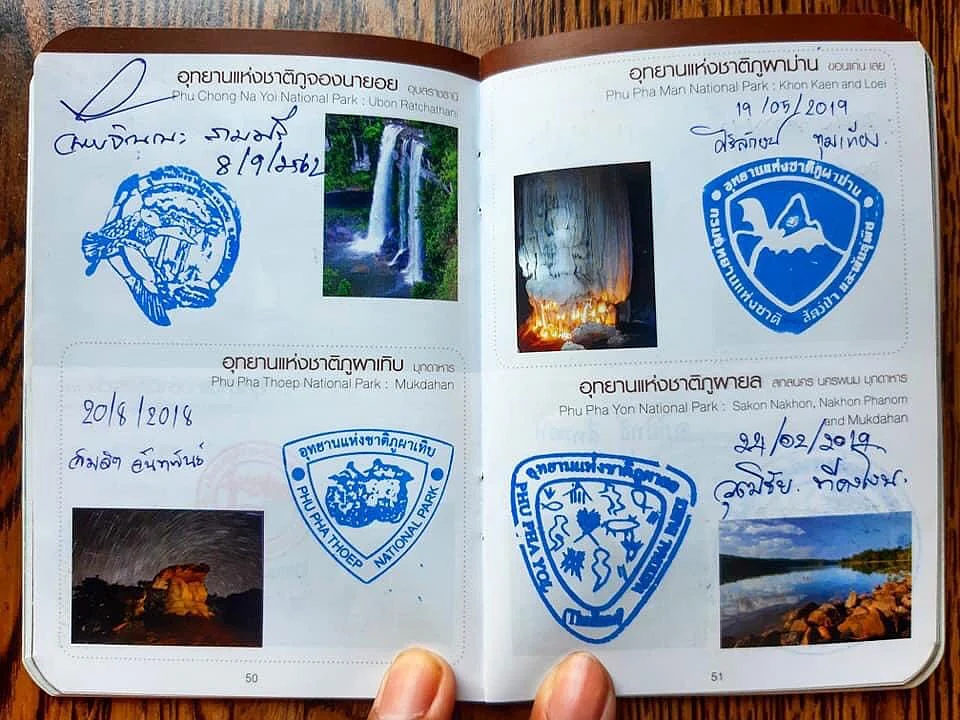 อุทยานแห่งชาติภูจองนายอย อุบลราชธานี
Phu Chong Na Yoi National Park : Ubon Ratchathani
8/9/2562
อุทยานแห่งชาติภูผาเทิบ มุกดาหาร
Phu Pha Thoep National Park : Mukdahan
20/8/2018
อุทยานแห่งชาติภูผาเทิบ
PHU PHA THOEP NATIONAL PARK
50
อุทยานแห่งชาติภูผาม่าน ขอนแก่น เลย
Phu Pha Man National Park : Khon Kaen and Loei
19/05/2019
ศิริลักษณ์
อุทยานแห่งชาติภูผาม่าน
กรมอุทยานแห่งชาติ สัตว์ป่า และพันธุ์พืช
อุทยานแห่งชาติภูผายล สกลนคร นครพนม มุกดาหาร
Phu Pha Yon National Park : Sakon Nakhon, Nakhon Phanom
and Mukdahan
22/02/2019
อุทยานแห่งชาติภูผายล
PHU PHA YOL NATIONAL PARK
(Thailand)
51